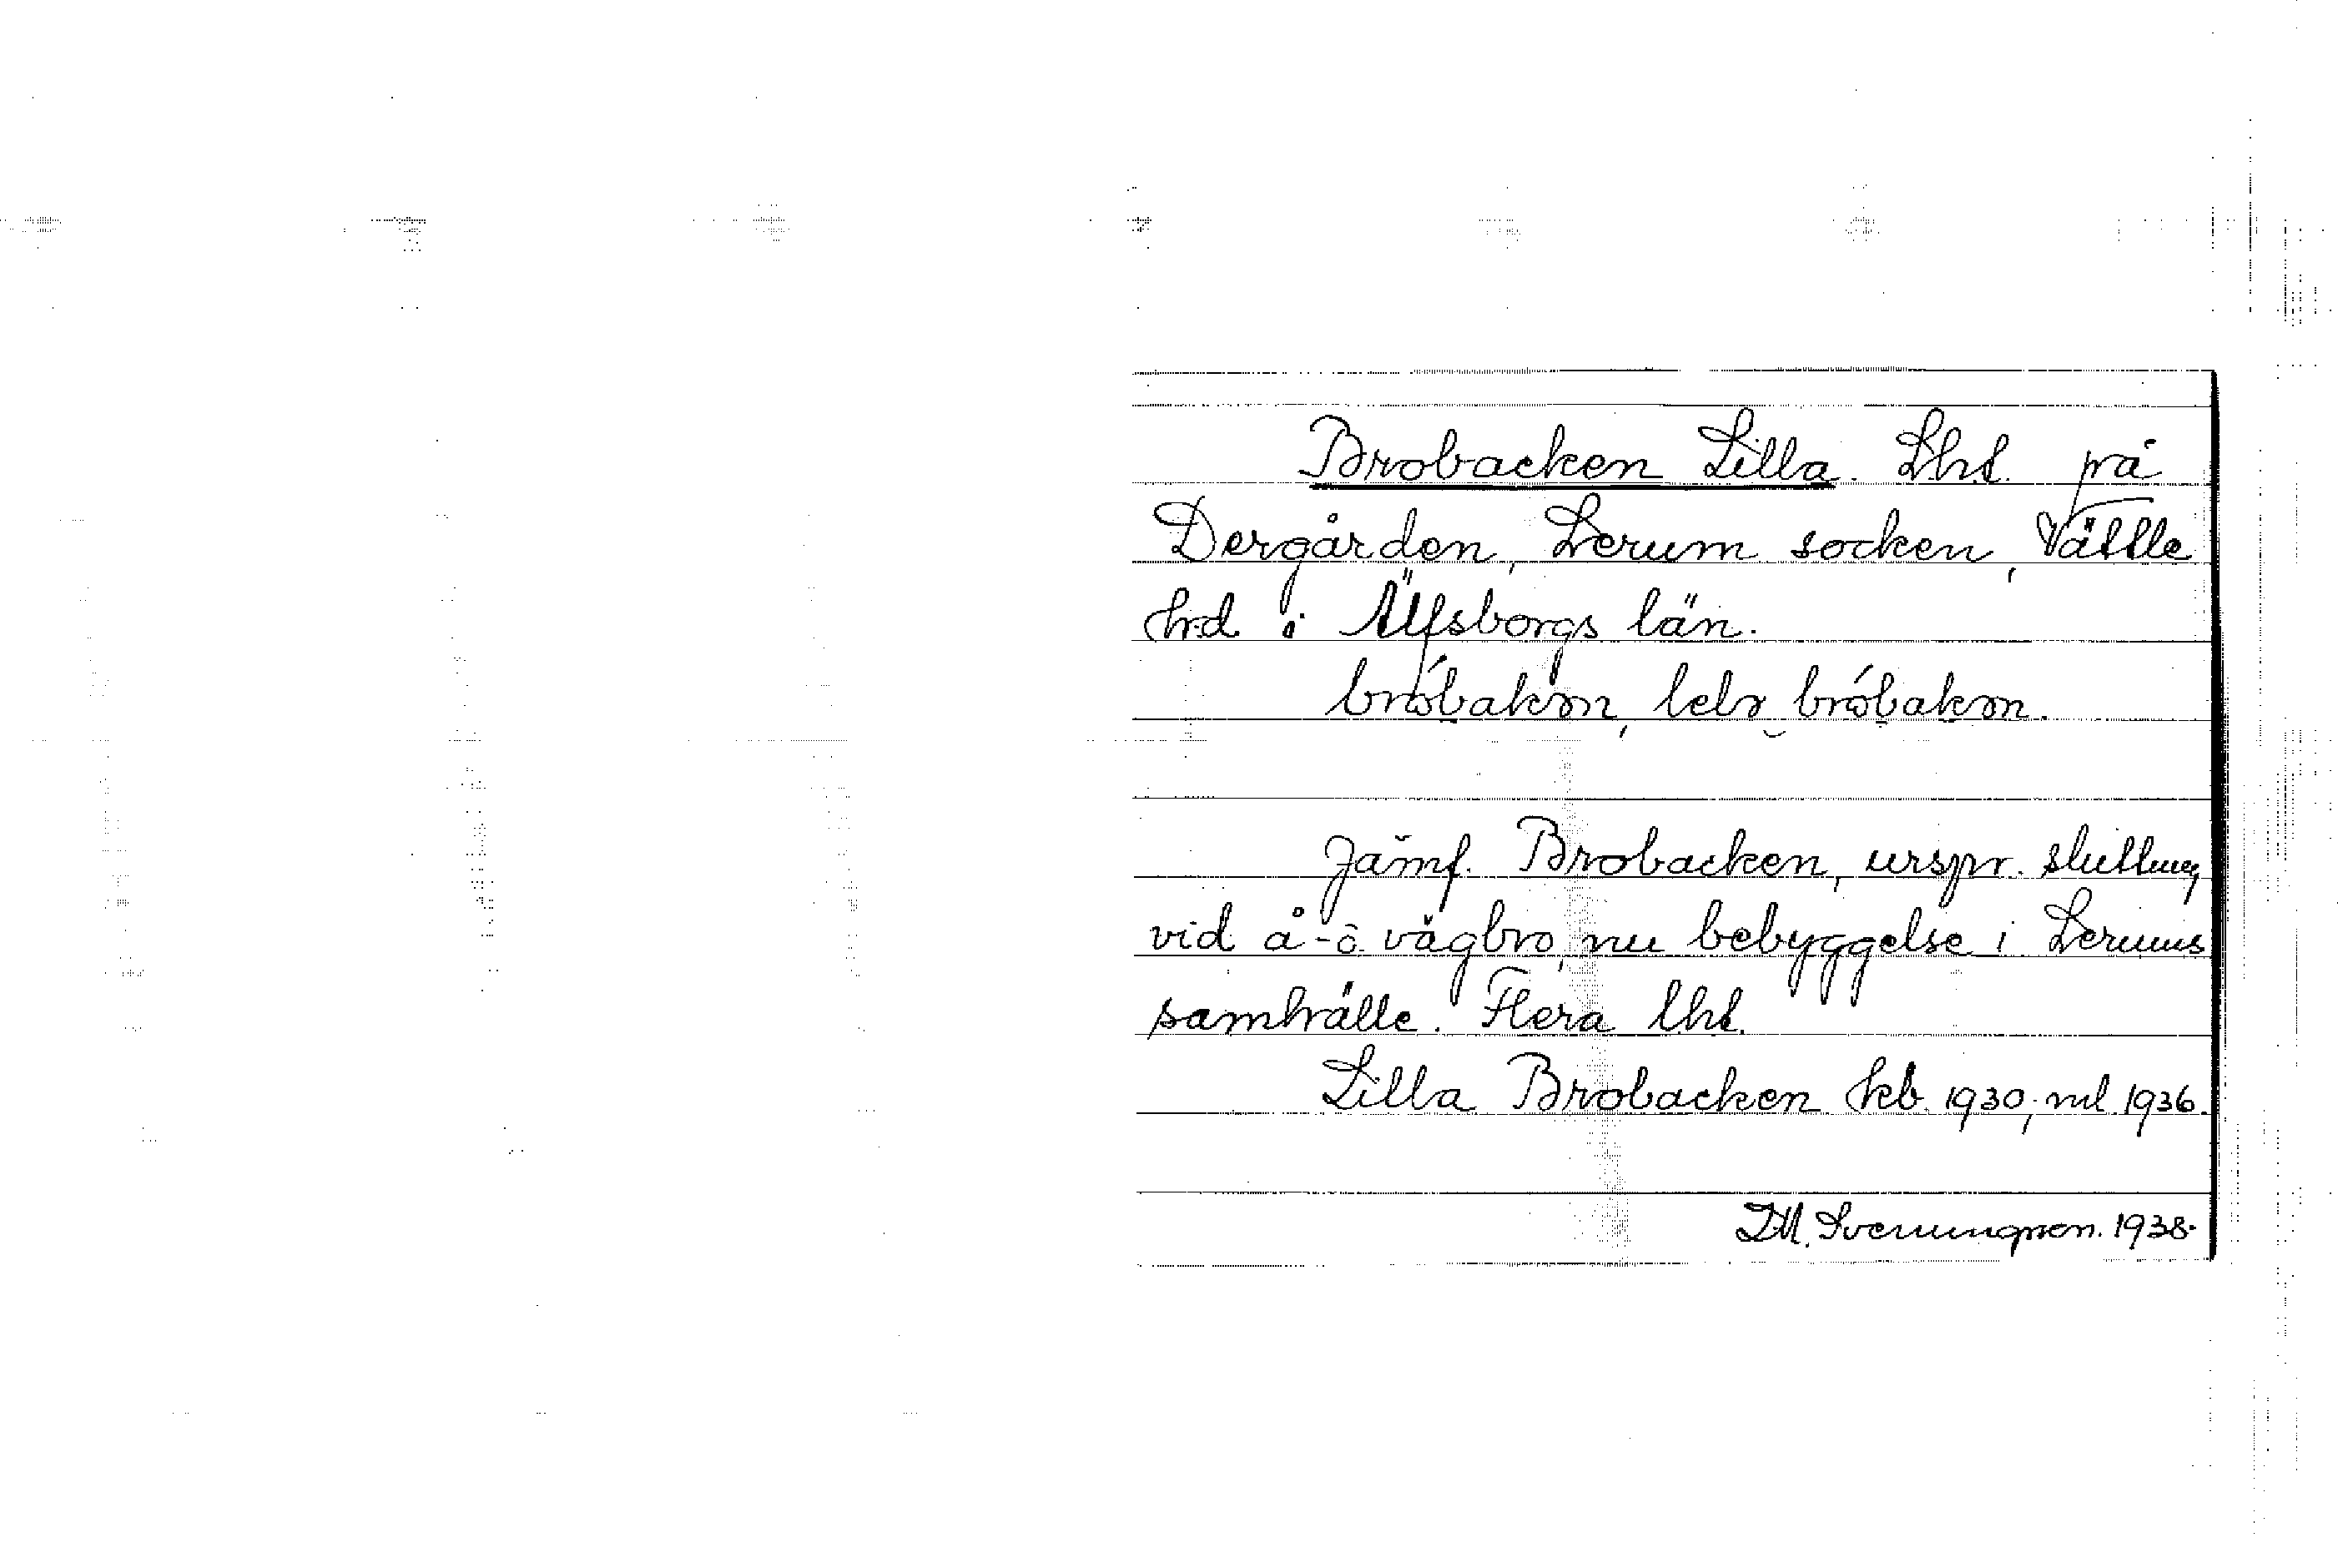 Brobacken Lilla. Lht. på
Dergården, Lerum socken, Vättle
hrd i Älfsborgs län.
bróbakən, lelə bróbakən.
Jämf. Brobacken, urspr. sluttning
vid å- o. vägbro, nu bebyggelse i Lerums
samhälle. Flera lht.
Lilla Brobacken kb. 1930, ml 1936.
Svenungsson. 1938.